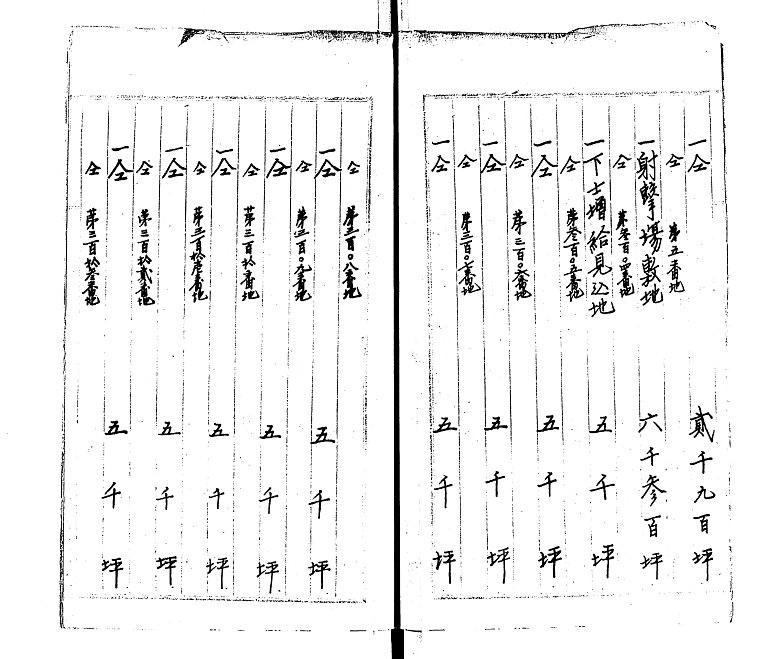 一仝 貳千九百坪
仝 第五番地
一射撃場敷地 六千參百坪
仝 第參百〇四番地
一下士増給見込地 五千坪
仝 第參百〇五番地
一仝 五千坪
仝 第三百〇六番地
一仝 五千坪
仝 第三百〇七番地
一仝 五千坪
仝 第三百〇八番地
一仝 五千坪
仝 第三百〇九番地
一仝 五千坪
仝 第三百拾番地
一仝 五千坪
仝 第三百拾壱番地
一仝 五千坪
仝 第三百拾貳番地
一仝 五千坪
仝 第三百拾参番地